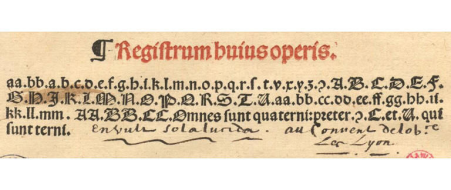 ¶ Registrum huius operis.
aa.bb.a.b.c.d.e.f.g.h.i.k.l.m.n.o.p.q.r.s.t.v.x.y.z.ꝛ.A.B.C.D.E.F.
G.H.I.K.L.M.N.O.P.Q.R.S.T.U.aa.bb.cc.dd.ee.ff.gg.hh.ii.
kk.ll.mm. AA.BB.CC. Omnes sunt quaterni: preter.ꝛ.C.et.U. qui
sunt terni. sola lucida. au Convent
Lyon.